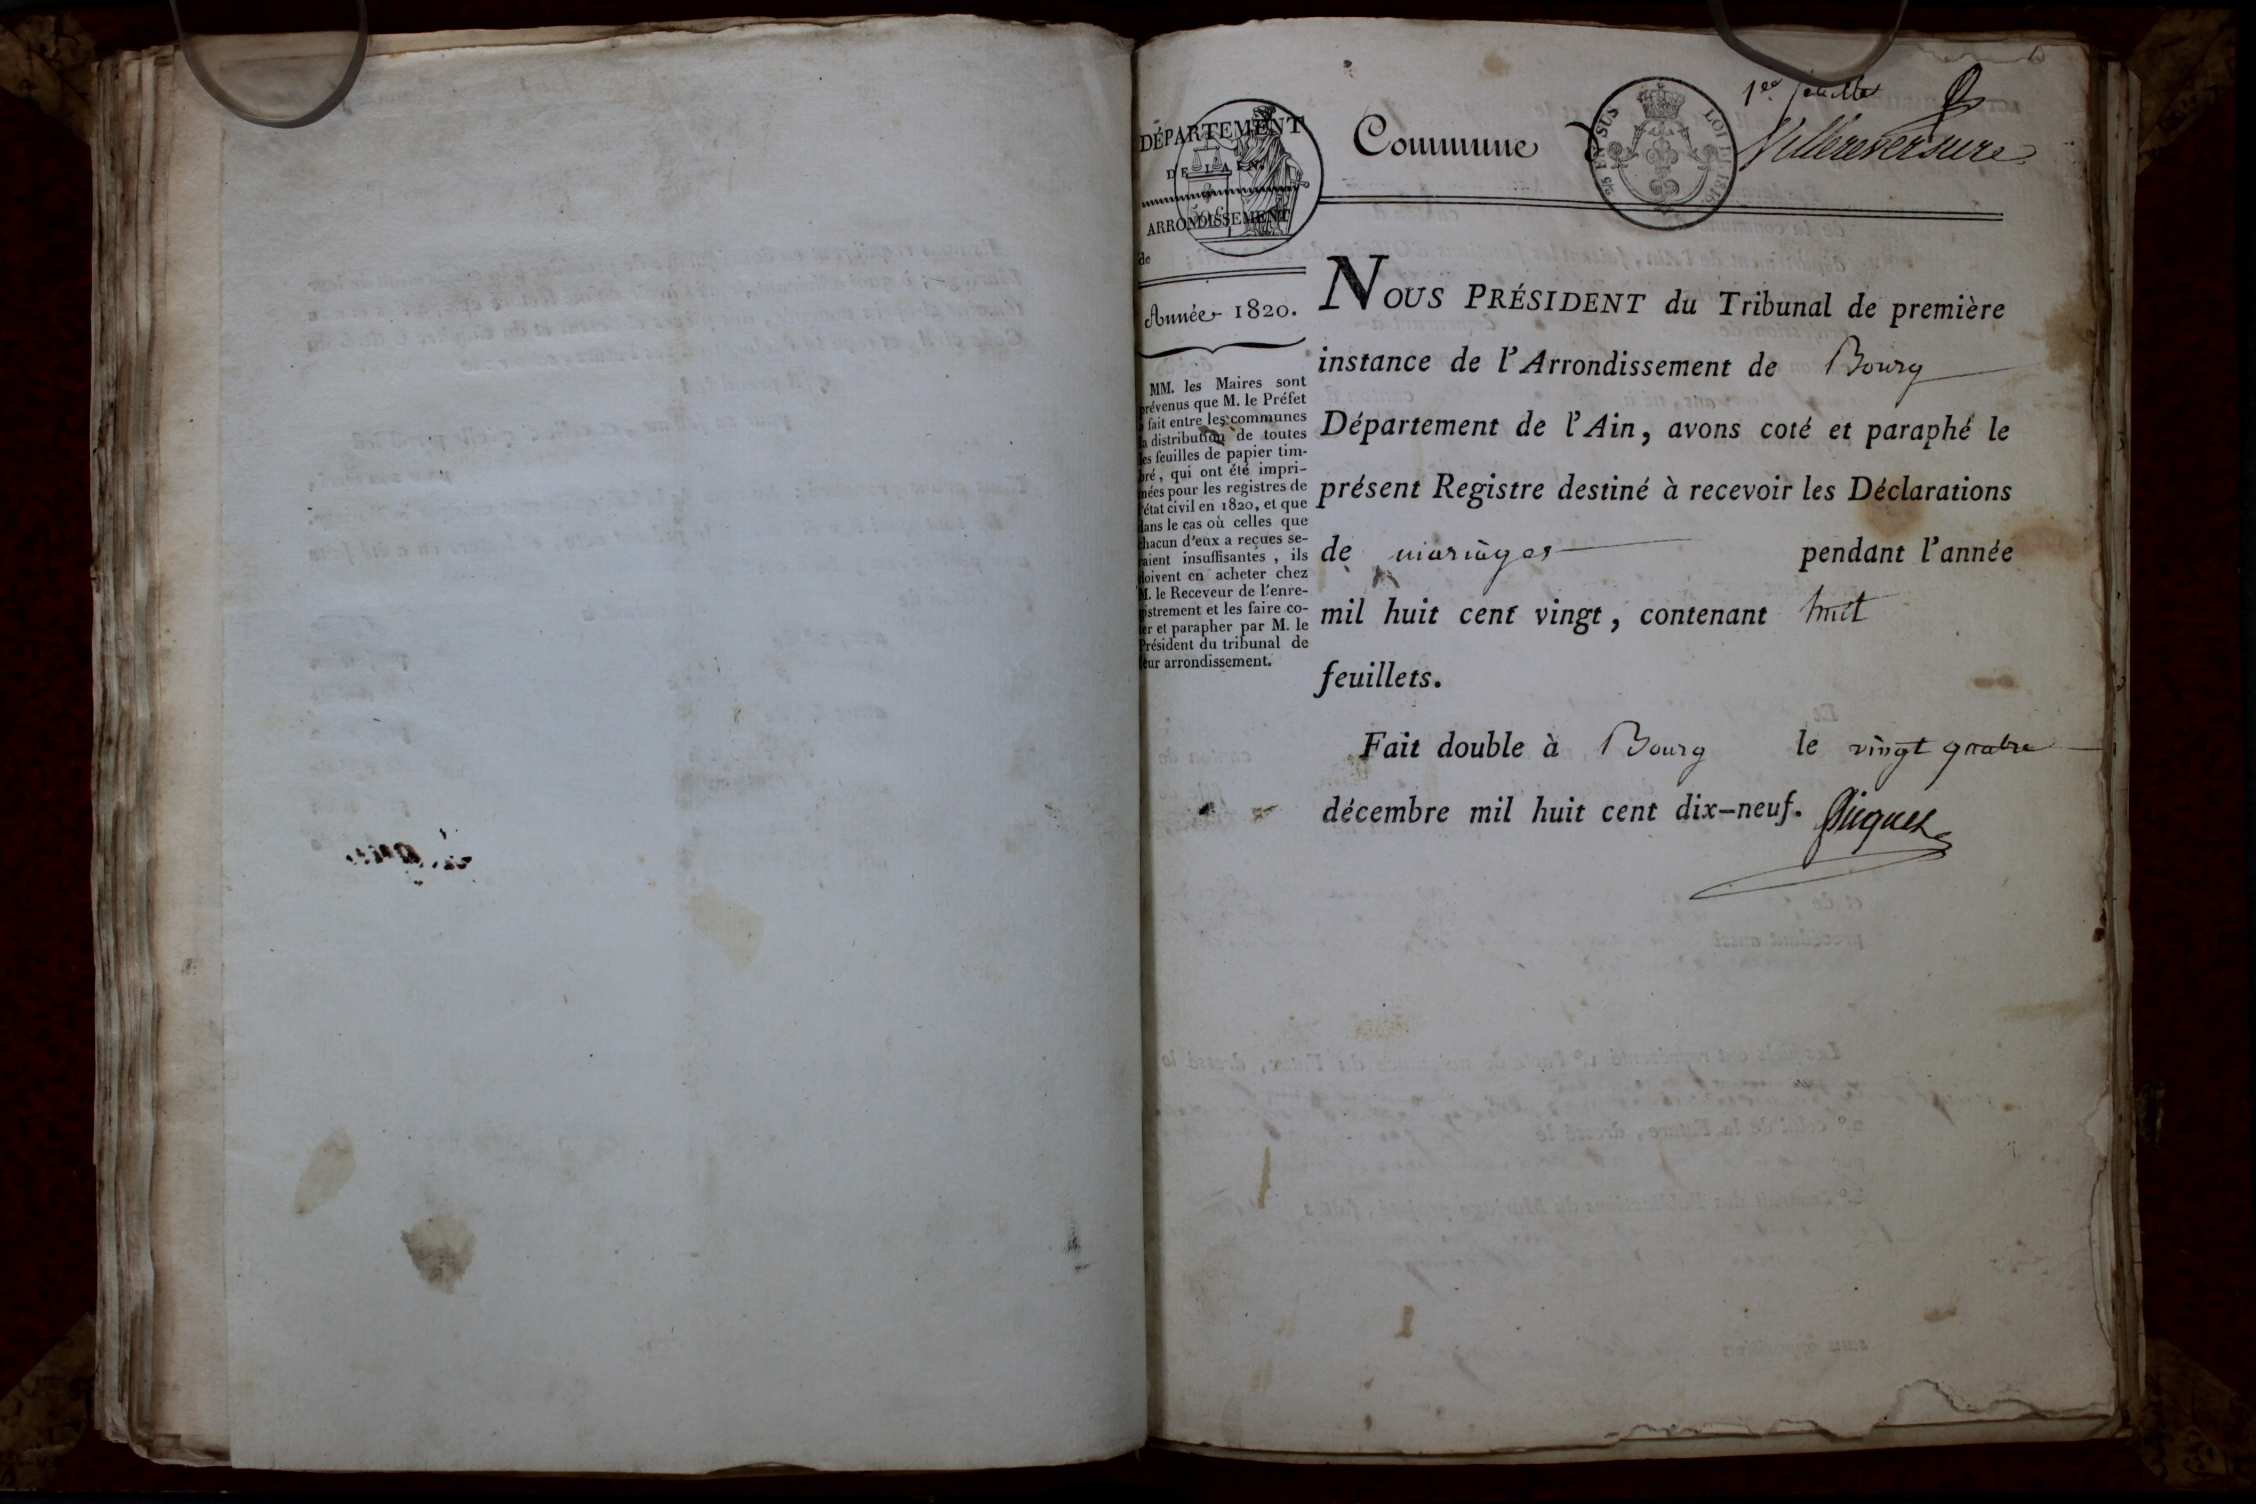 1er feuillet
DÉPARTEMENT
DE L'AIN.
ARRONDISSEMENT
de
Commune de Villereversure
25 EN SUS LOI DE 1816
Année 1820.
MM. les Maires sont
prévenus que M. le Préfet
a fait entre les communes
la distribution de toutes
les feuilles de papier tim-
bré, qui ont été impri-
mées pour les registres de
l'état civil en 1820, et que
dans le cas où celles que
chacun d'eux a reçues se-
raient insuffisantes, ils
doivent en acheter chez
M. le Receveur de l'enre-
gistrement et les faire co-
ter et parapher par M. le
Président du tribunal de
leur arrondissement.
NOUS PRÉSIDENT du Tribunal de première
instance de l'Arrondissement de Bourg
Département de l'Ain, avons coté et paraphé le
présent Registre destiné à recevoir les Déclarations
de mariages pendant l'année
mil huit cent vingt, contenant huit
feuillets.
Fait double à Bourg le vingt quatre
décembre mil huit cent dix-neuf.